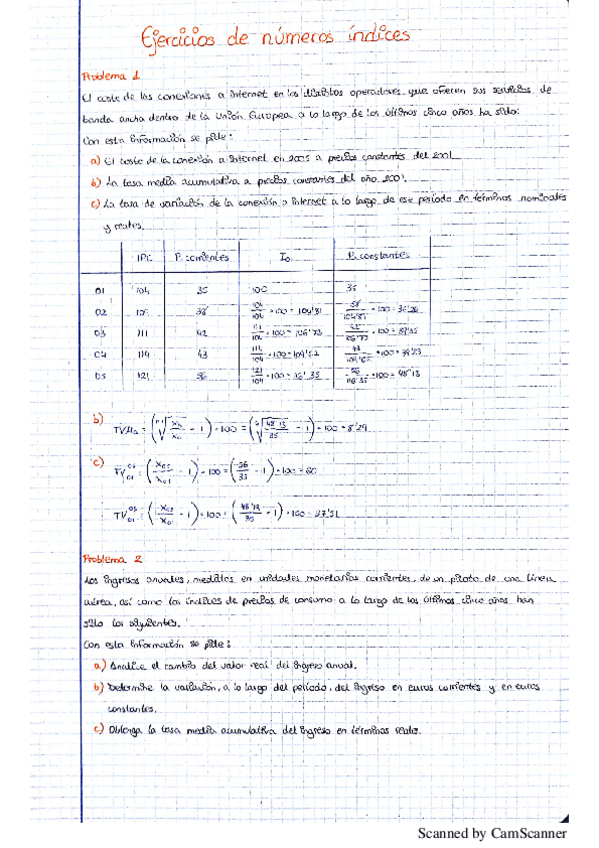 Ejercicios de números índices
Problema 1
El coste de las conexiones a internet en los distintos operadores que ofrecen sus servicios de
banda ancha dentro de la Unión Europea a lo largo de los últimos cinco años ha sido:
Con esta información se pide:
a) El coste de la conexión a internet en 2005 a precios constantes del 2001
b) La tasa media acumulativa a precios constantes del año 2001.
c) La tasa de variación de la conexión a internet a lo largo de ese período en términos nominales
y reales.
IPC P. corrientes I₀ P. constantes
01 104 35 100 35
02 38 104/104 · 100 =
03 111 42 111/104 · 100 = 106'73 · 100 =
04 114 43 114/104 · 100 = · 100 =
05 121 56 121/104 · 100 = 116'35 56/116'35 · 100 = 48'13
b) = (48'13/35 - 1) · 100 = 8'29
c) TV = (x05/x01 - 1) · 100 = (56/35 - 1) · 100 = 60
TV = (x05/x01 - 1) · 100 = (48'13/35 - 1) · 100 = 37'51
Problema 2
Los ingresos anuales, medidos en unidades monetarias corrientes, de un piloto de una línea
aérea, así como los índices de precios de consumo a lo largo de los últimos cinco años han
sido los siguientes.
Con esta información se pide:
a) Analice el cambio del valor real del ingreso anual.
b) Determine la variación, a lo largo del período, del ingreso en euros corrientes y en euros
constantes.
c) Obtenga la tasa media acumulativa del ingreso en términos reales.
Scanned by CamScanner